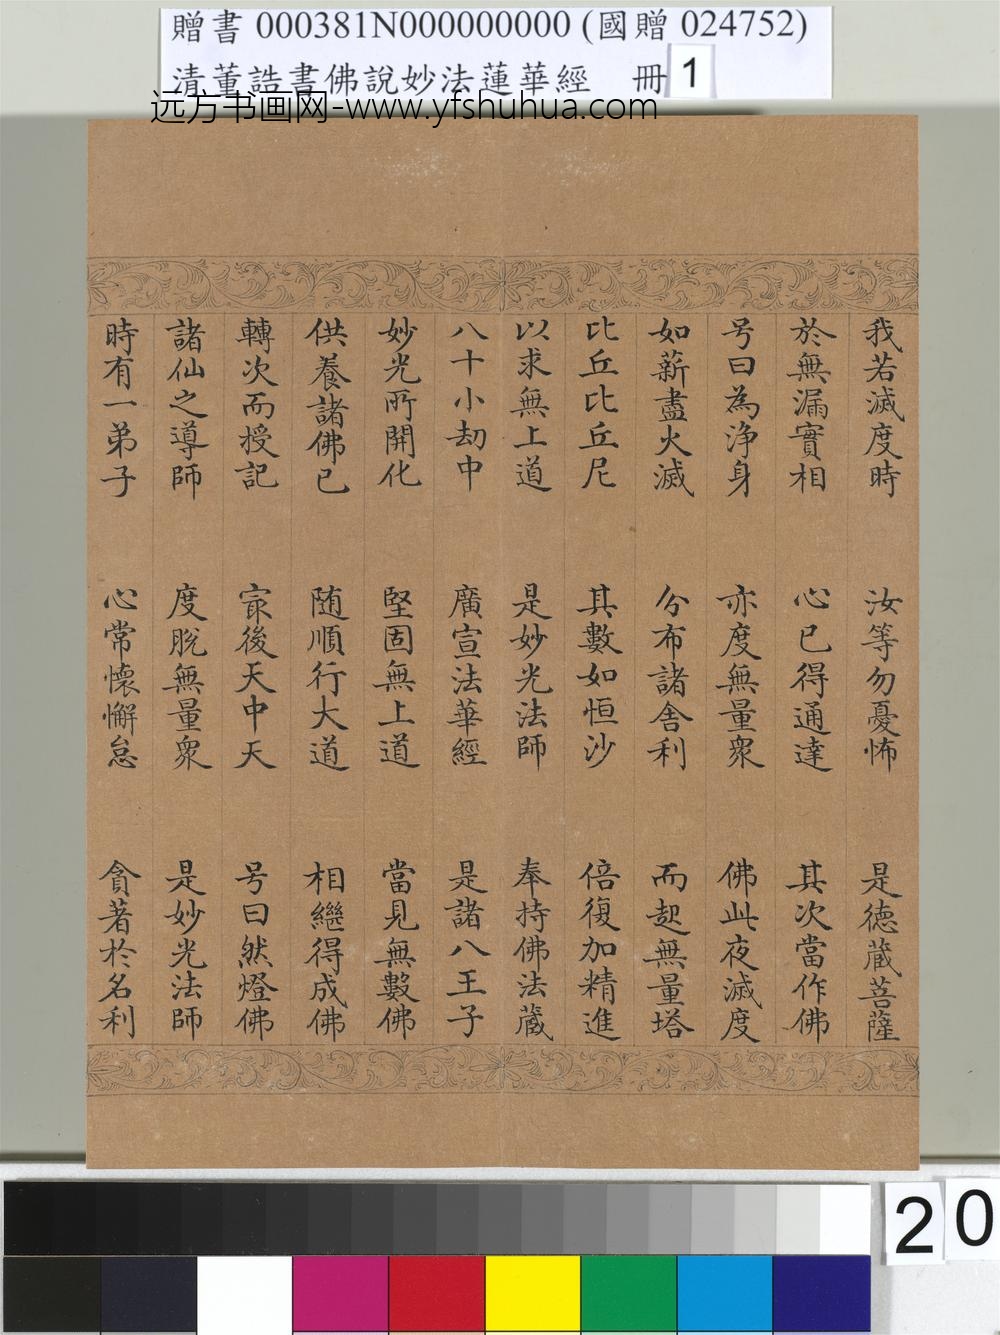 贈書 000381N000000000 (國贈 024752)
清董誥書佛說妙法蓮華經 冊 1
远方书画网-www.yfshuhua.com
我若滅度時 汝等勿憂怖 是德蔵菩薩
於無漏實相 心已得通達 其次當作佛
号曰為淨身 亦度無量衆 佛此夜滅度
如薪盡火滅 分布諸舍利 而起無量塔
比丘比丘尼 其數如恒沙 倍復加精進
以求無上道 是妙光法師 奉持佛法蔵
八十小劫中 廣宣法華經 是諸八王子
妙光所開化 堅固無上道 當見無數佛
供養諸佛已 随順行大道 相繼得成佛
轉次而授記 㝡後天中天 号曰然燈佛
諸仙之導師 度脫無量衆 是妙光法師
時有一弟子 心常懷懈怠 貪著於名利
20